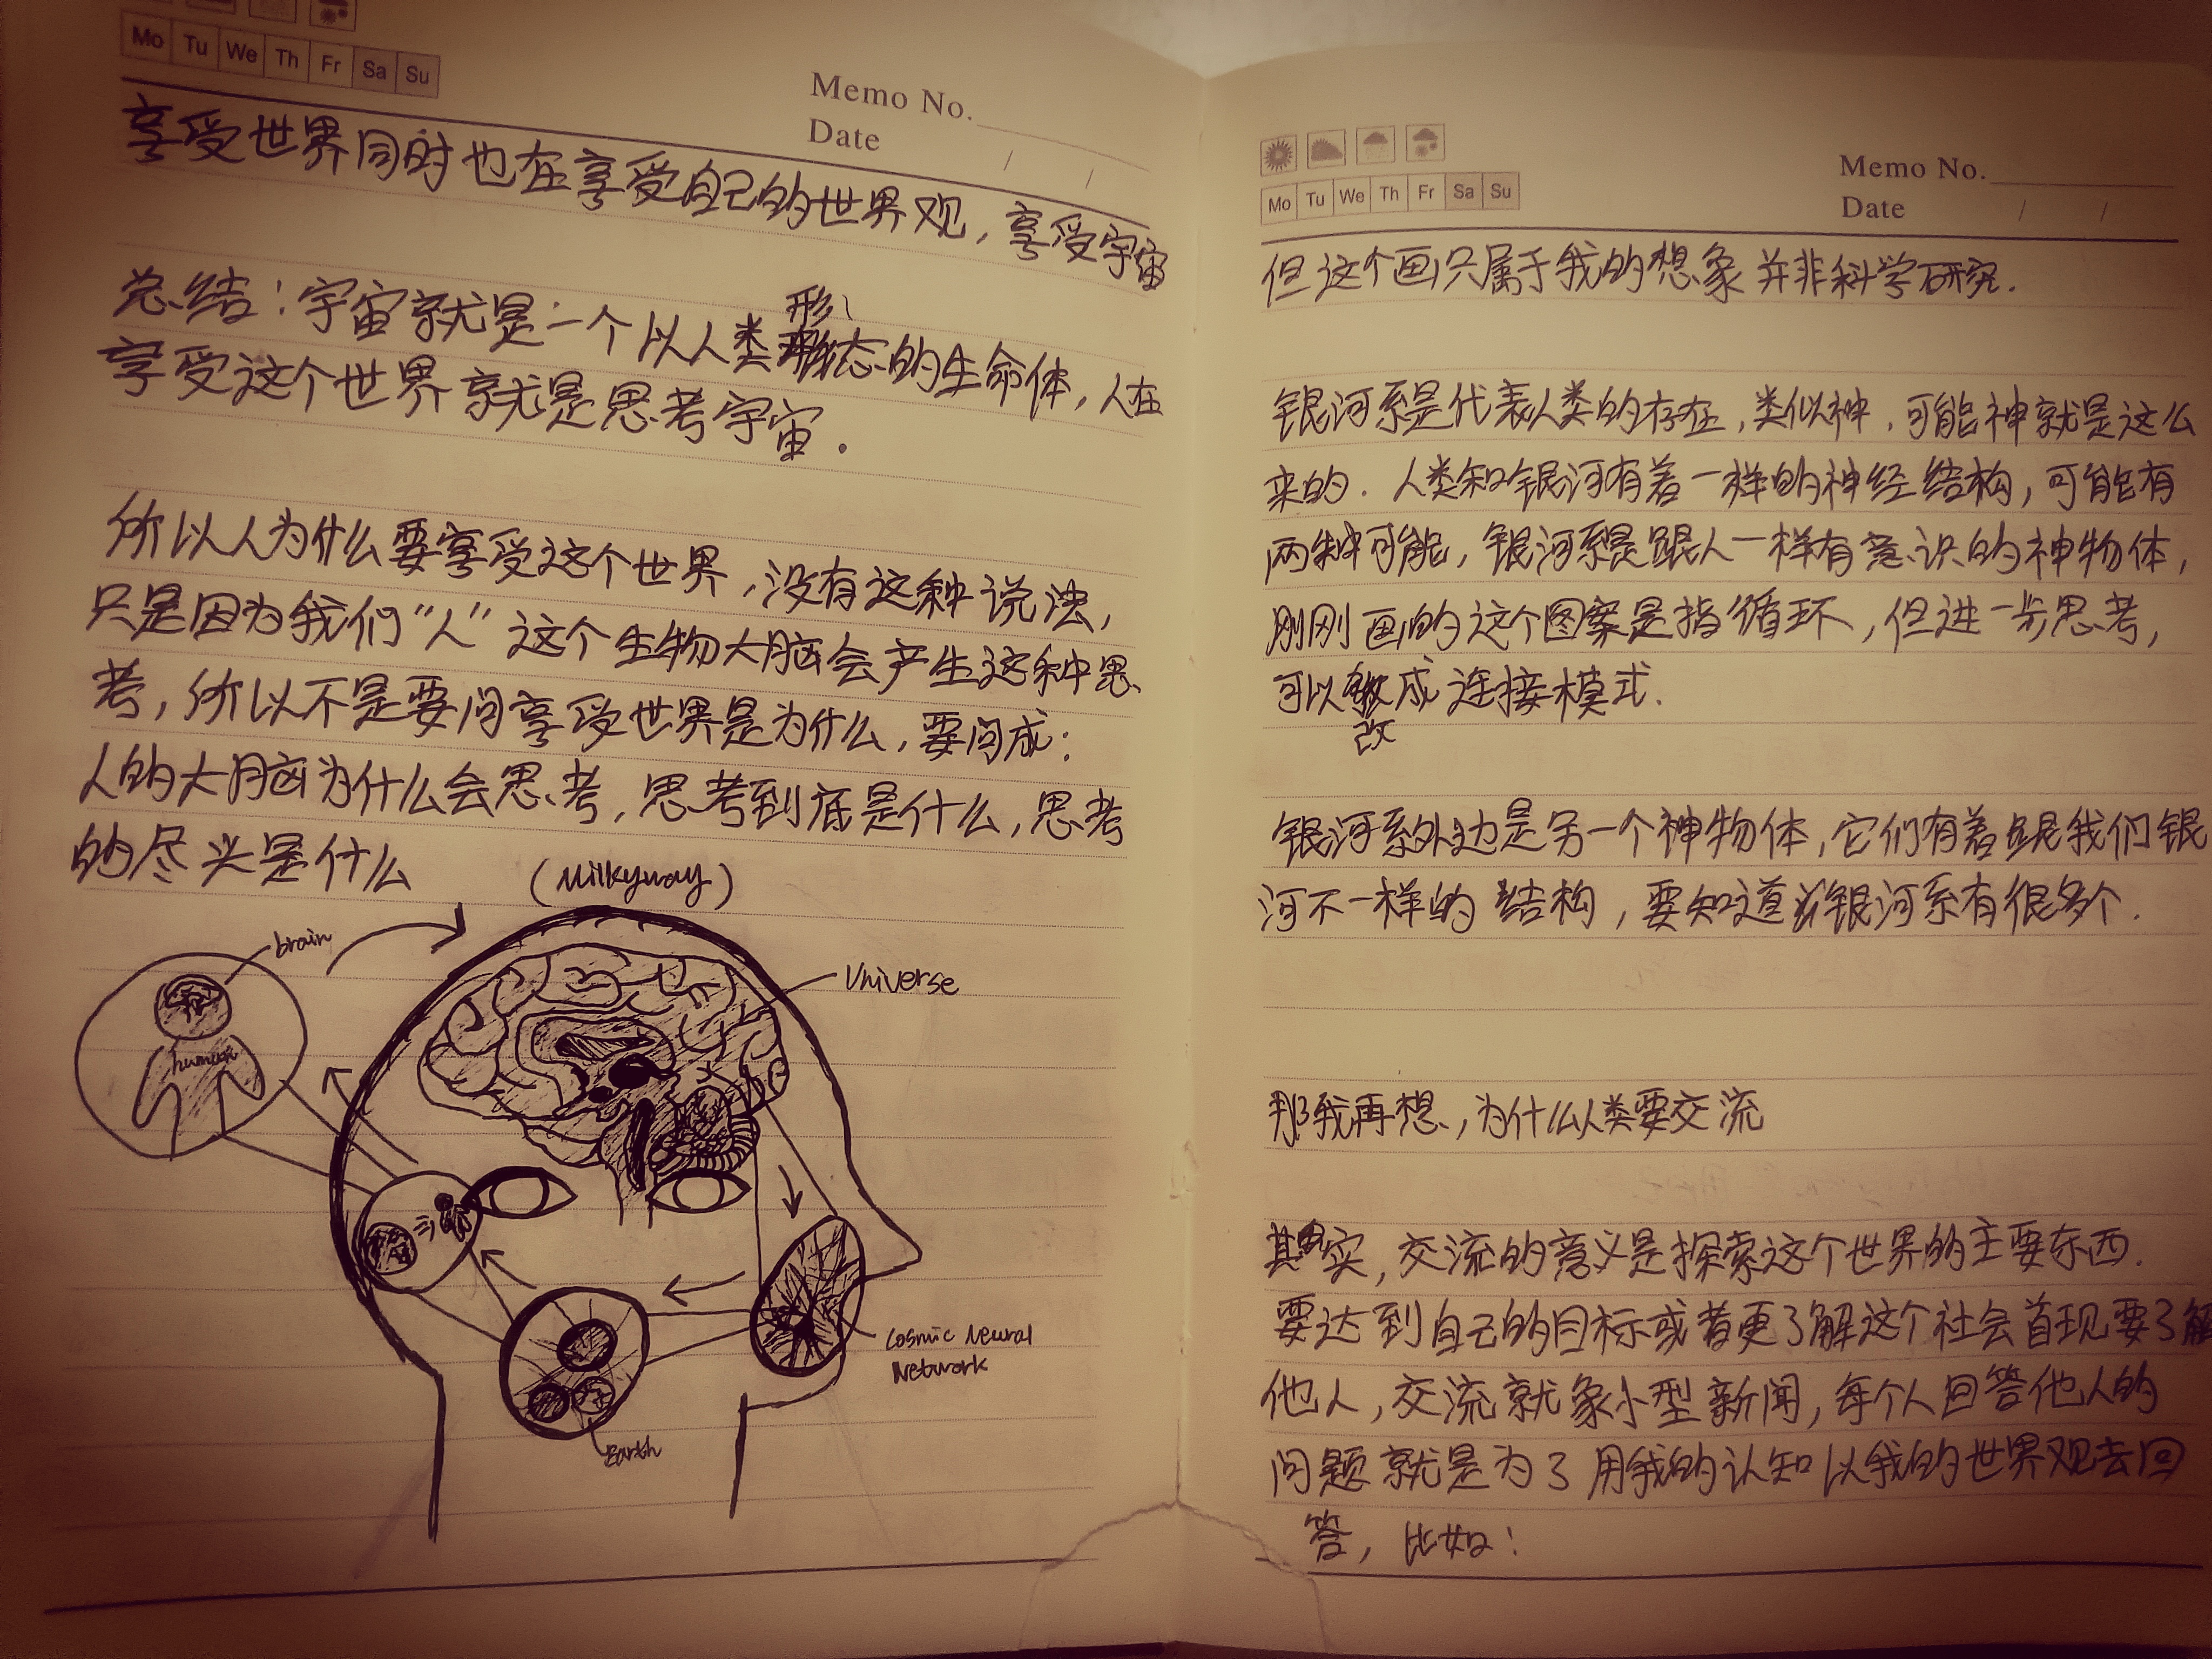 Mo Tu We Th Fr Sa Su
Memo No.
Date / /
享受世界同时也在享受自己的世界观，享受宇宙
总结：宇宙就是一个以人类形态的生命体，人在
享受这个世界就是思考宇宙.
所以人为什么要享受这个世界，没有这种说法，
只是因为我们“人”这个生物大脑会产生这种思
考，所以不是要问享受世界是为什么，要问成：
人的大脑为什么会思考，思考到底是什么，思考
的尽头是什么
(Milkyway)
brain
human
Universe
Cosmic Neural
Network
Earth
Mo Tu We Th Fr Sa Su
Memo No.
Date / /
但这个画只属于我的想象并非科学研究.
银河系是代表人类的存在，类似神，可能神就是这么
来的. 人类和银河有着一样的神经结构，可能有
两种可能，银河系是跟人一样有意识的神物体，
刚刚画的这个图案是指循环，但进一步思考，
可以改成连接模式.
银河系外边是另一个神物体，它们有着跟我们银
河不一样的结构，要知道银河系有很多个.
那我再想，为什么人类要交流
其实，交流的意义是探索这个世界的主要东西.
要达到自己的目标或者更了解这个社会首现要了解
他人，交流就象小型新闻，每个人回答他人的
问题就是为了用我的认知以我的世界观去回
答，比如：